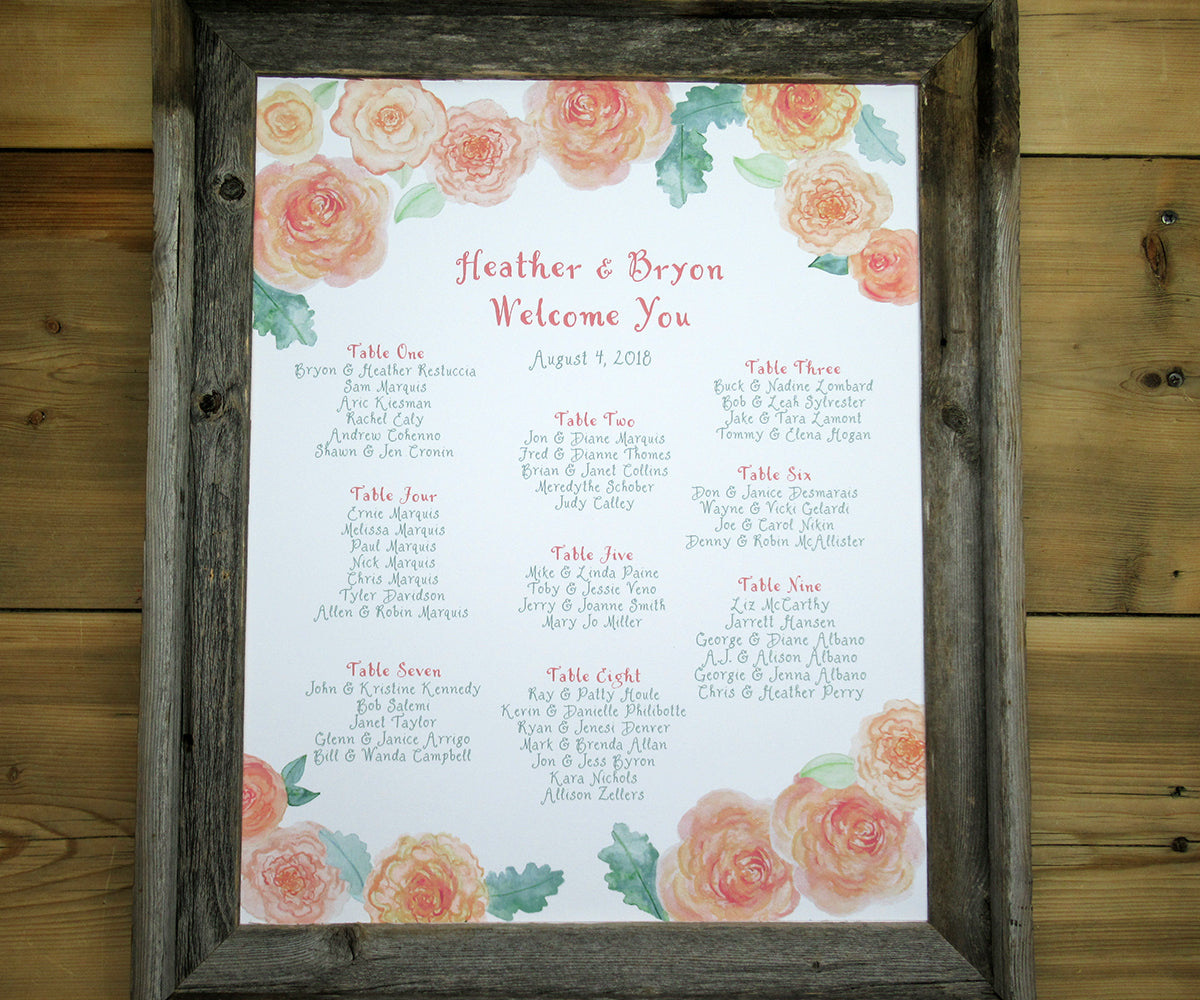 Heather & Bryon
Welcome You
August 4, 2018
Table One
Bryon & Heather Restuccia
Sam Marquis
Aric Kiesman
Rachel Ealy
Andrew Cohenno
Shawn & Jen Cronin
Table Two
Jon & Diane Marquis
Fred & Dianne Thomes
Brian & Janet Collins
Meredythe Schober
Judy Calley
Table Three
Buck & Nadine Lombard
Bob & Leah Sylvester
Jake & Tara Lamont
Tommy & Elena Hogan
Table Four
Ernie Marquis
Melissa Marquis
Paul Marquis
Nick Marquis
Chris Marquis
Tyler Davidson
Allen & Robin Marquis
Table Five
Mike & Linda Paine
Toby & Jessie Veno
Jerry & Joanne Smith
Mary Jo Miller
Table Six
Don & Janice Desmarais
Wayne & Vicki Gelardi
Joe & Carol Nikin
Denny & Robin McAllister
Table Seven
John & Kristine Kennedy
Bob Salemi
Janet Taylor
Glenn & Janice Arrigo
Bill & Wanda Campbell
Table Eight
Ray & Patty Houle
Kevin & Danielle Philibotte
Ryan & Jenesi Denver
Mark & Brenda Allan
Jon & Jess Byron
Kara Nichols
Allison Zellers
Table Nine
Liz McCarthy
Jarrett Hansen
George & Diane Albano
A.J. & Alison Albano
Georgie & Jenna Albano
Chris & Heather Perry